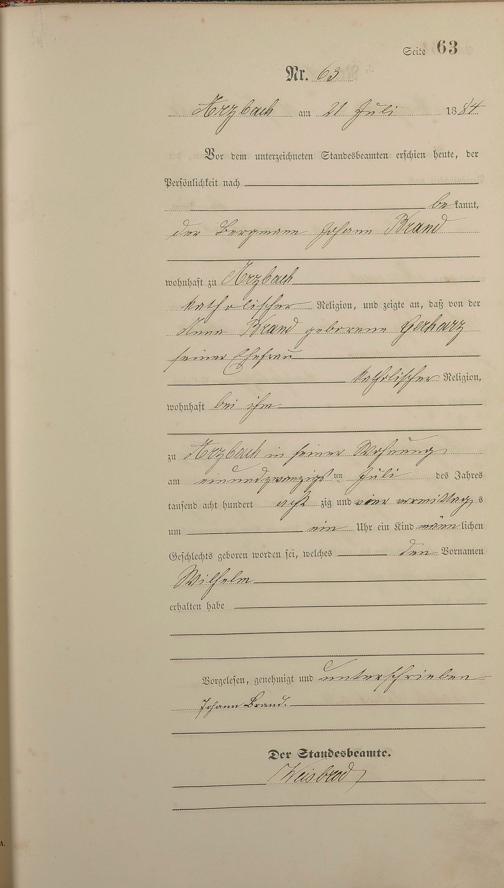 Seite 63
Nr. 63
Arzbach am 21 Juli 1884
Vor dem unterzeichneten Standesbeamten erschien heute, der
Persönlichkeit nach
bekannt,
der Bergmann Johann Brand
wohnhaft zu Arzbach
katholischer Religion, und zeigte an, daß von der
Anna Brand geborene Gerharz
seiner Ehefrau
katholischer Religion,
wohnhaft bei ihm
zu Arzbach in seiner Wohnung
am einundzwanzigsten Juli des Jahres
tausend acht hundert achtzig und vier vormittags
um ein Uhr ein Kind männlichen
Geschlechts geboren worden sei, welches den Vornamen
Wilhelm
erhalten habe
Vorgelesen, genehmigt und unterschrieben
Johann Brand.
Der Standesbeamte.
Weisbrod